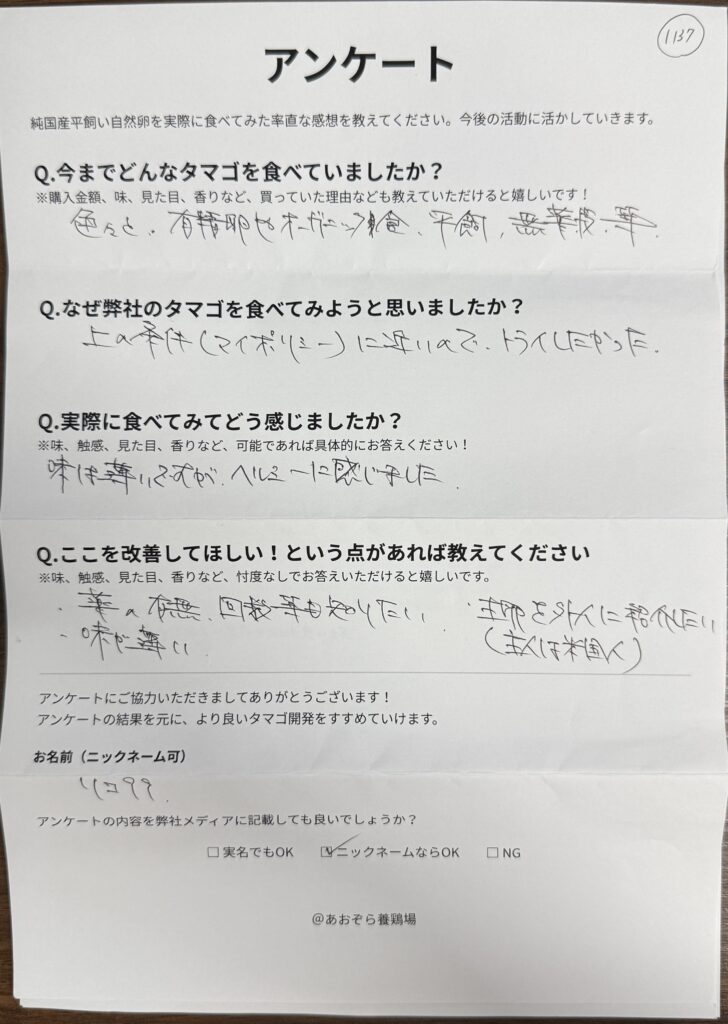 1137
アンケート
純国産平飼い自然卵を実際に食べてみた率直な感想を教えてください。今後の活動に活かしていきます。
Q.今までどんなタマゴを食べていましたか？
※購入金額、味、見た目、香りなど、買っていた理由なども教えていただけると嬉しいです！
色々と、有精卵やオーガニック 、平飼、無薬 、等.
Q.なぜ弊社のタマゴを食べてみようと思いましたか？
上の条件(マイポリシー)に近いので、トライしたかった.
Q.実際に食べてみてどう感じましたか？
※味、触感、見た目、香りなど、可能であれば具体的にお答えください！
味は薄いですが、ヘルシーに感じました.
Q.ここを改善してほしい！という点があれば教えてください
※味、触感、見た目、香りなど、忖度なしでお答えいただけると嬉しいです。
・薬の有無、回数等も知りたい
・味が薄い
・生卵を外人に紹介したい
(主人は米国人)
アンケートにご協力いただきましてありがとうございます！
アンケートの結果を元に、より良いタマゴ開発をすすめていけます。
お名前（ニックネーム可）
リコララ.
アンケートの内容を弊社メディアに記載しても良いでしょうか？
□ 実名でもOK ☑ ニックネームならOK □ NG
@あおぞら養鶏場